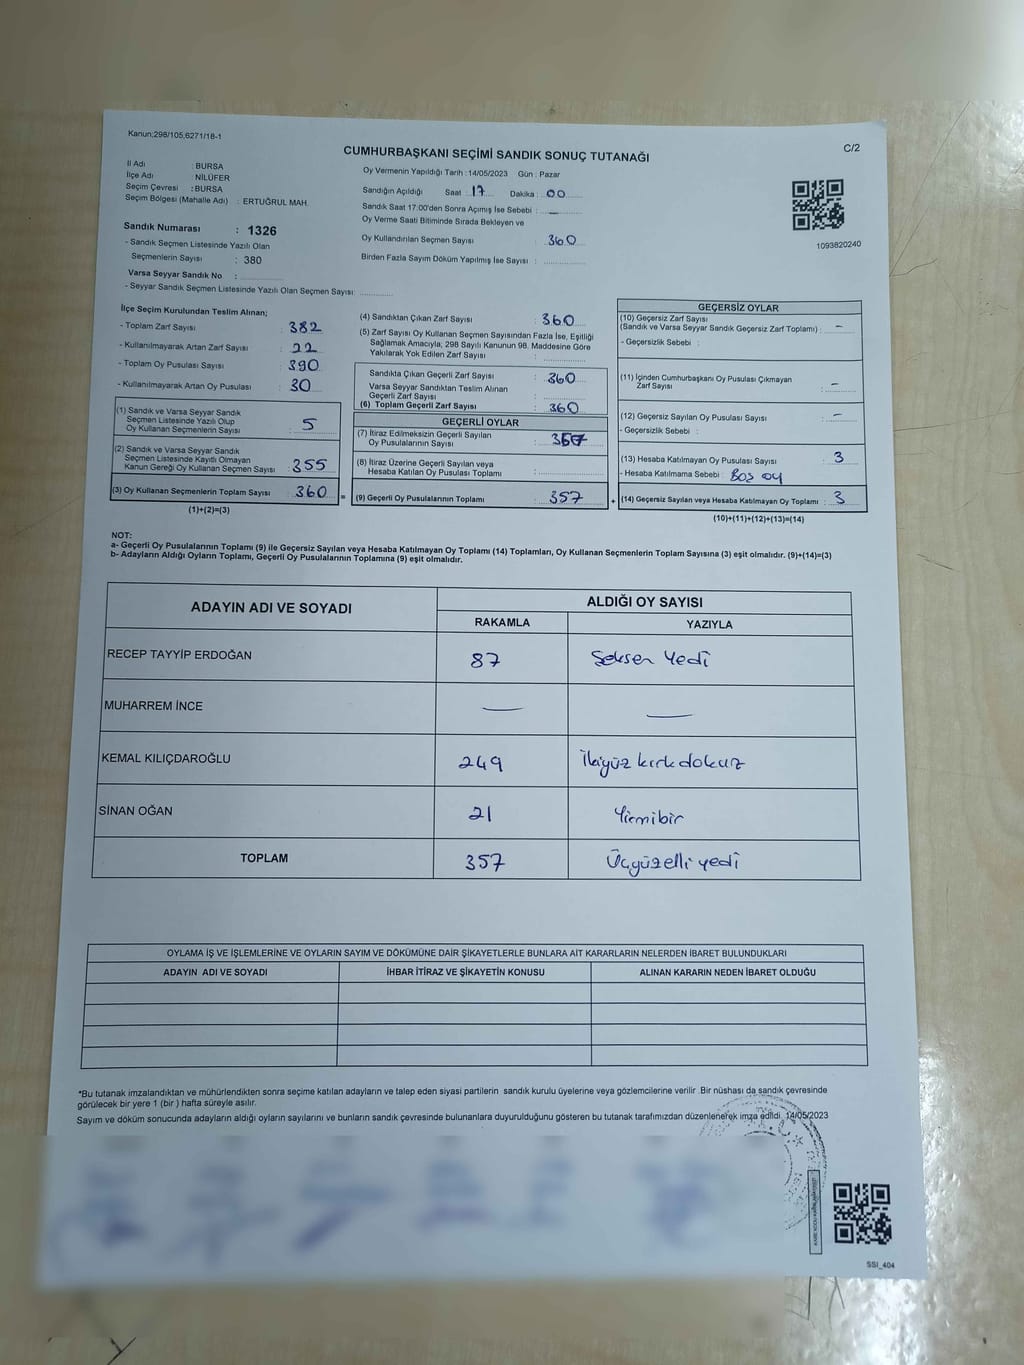 Kanun;298/105,6271/18-1
C/2
CUMHURBAŞKANI SEÇİMİ SANDIK SONUÇ TUTANAĞI
İl Adı : BURSA
İlçe Adı : NİLÜFER
Seçim Çevresi : BURSA
Seçim Bölgesi (Mahalle Adı) : ERTUĞRUL MAH.
Sandık Numarası : 1326
- Sandık Seçmen Listesinde Yazılı Olan
Seçmenlerin Sayısı : 380
Varsa Seyyar Sandık No :
- Seyyar Sandık Seçmen Listesinde Yazılı Olan Seçmen Sayısı:
Oy Vermenin Yapıldığı Tarih : 14/05/2023 Gün : Pazar
Sandığın Açıldığı Saat : 17 Dakika : 00
Sandık Saat 17:00'den Sonra Açımış İse Sebebi : —
Oy Verme Saati Bitiminde Sırada Bekleyen ve
Oy Kullandırılan Seçmen Sayısı : 360
Birden Fazla Sayım Döküm Yapılmış İse Sayısı :
1093820240
İlçe Seçim Kurulundan Teslim Alınan;
- Toplam Zarf Sayısı : 382
- Kullanılmayarak Artan Zarf Sayısı : 22
- Toplam Oy Pusulası Sayısı : 390
- Kullanılmayarak Artan Oy Pusulası : 30
(1) Sandık ve Varsa Seyyar Sandık
Seçmen Listesinde Yazılı Olup
Oy Kullanan Seçmenlerin Sayısı : 5
(2) Sandık ve Varsa Seyyar Sandık
Seçmen Listesinde Kayıtlı Olmayan
Kanun Gereği Oy Kullanan Seçmen Sayısı : 355
(3) Oy Kullanan Seçmenlerin Toplam Sayısı : 360
(1)+(2)=(3)
(4) Sandıktan Çıkan Zarf Sayısı : 360
(5) Zarf Sayısı Oy Kullanan Seçmen Sayısından Fazla İse, Eşitliği
Sağlamak Amacıyla, 298 Sayılı Kanunun 98. Maddesine Göre
Yakılarak Yok Edilen Zarf Sayısı :
Sandıkta Çıkan Geçerli Zarf Sayısı : 360
Varsa Seyyar Sandıktan Teslim Alınan
Geçerli Zarf Sayısı :
(6) Toplam Geçerli Zarf Sayısı : 360
GEÇERLİ OYLAR
(7) İtiraz Edilmeksizin Geçerli Sayılan
Oy Pusulalarının Sayısı : 357
(8) İtiraz Üzerine Geçerli Sayılan veya
Hesaba Katılan Oy Pusulası Toplamı :
= (9) Geçerli Oy Pusulalarının Toplamı : 357 +
GEÇERSİZ OYLAR
(10) Geçersiz Zarf Sayısı
(Sandık ve Varsa Seyyar Sandık Geçersiz Zarf Toplamı) : –
- Geçersizlik Sebebi :
(11) İçinden Cumhurbaşkanı Oy Pusulası Çıkmayan
Zarf Sayısı : –
(12) Geçersiz Sayılan Oy Pusulası Sayısı : –
- Geçersizlik Sebebi :
(13) Hesaba Katılmayan Oy Pusulası Sayısı : 3
- Hesaba Katılmama Sebebi : Boş oy
(14) Geçersiz Sayılan veya Hesaba Katılmayan Oy Toplamı : 3
(10)+(11)+(12)+(13)=(14)
NOT:
a- Geçerli Oy Pusulalarının Toplamı (9) ile Geçersiz Sayılan veya Hesaba Katılmayan Oy Toplamı (14) Toplamları, Oy Kullanan Seçmenlerin Toplam Sayısına (3) eşit olmalıdır. (9)+(14)=(3)
b- Adayların Aldığı Oyların Toplamı, Geçerli Oy Pusulalarının Toplamına (9) eşit olmalıdır.
ADAYIN ADI VE SOYADI
ALDIĞI OY SAYISI
RAKAMLA YAZIYLA
RECEP TAYYİP ERDOĞAN 87 Seksen Yedi
MUHARREM İNCE — —
KEMAL KILIÇDAROĞLU 249 İkiyüz kırkdokuz
SİNAN OĞAN 21 Yirmibir
TOPLAM 357 Üçyüzelli yedi
OYLAMA İŞ VE İŞLEMLERİNE VE OYLARIN SAYIM VE DÖKÜMÜNE DAİR ŞİKAYETLERLE BUNLARA AİT KARARLARIN NELERDEN İBARET BULUNDUKLARI
ADAYIN ADI VE SOYADI İHBAR İTİRAZ VE ŞİKAYETİN KONUSU ALINAN KARARIN NEDEN İBARET OLDUĞU
*Bu tutanak imzalandıktan ve mühürlendikten sonra seçime katılan adayların ve talep eden siyasi partilerin sandık kurulu üyelerine veya gözlemcilerine verilir .Bir nüshası da sandık çevresinde
görülecek bir yere 1 (bir ) hafta süreyle asılır.
Sayım ve döküm sonucunda adayların aldığı oyların sayılarını ve bunların sandık çevresinde bulunanlara duyurulduğunu gösteren bu tutanak tarafımızdan düzenlenerek imza edildi. 14/05/2023
T.C.
SSI_404